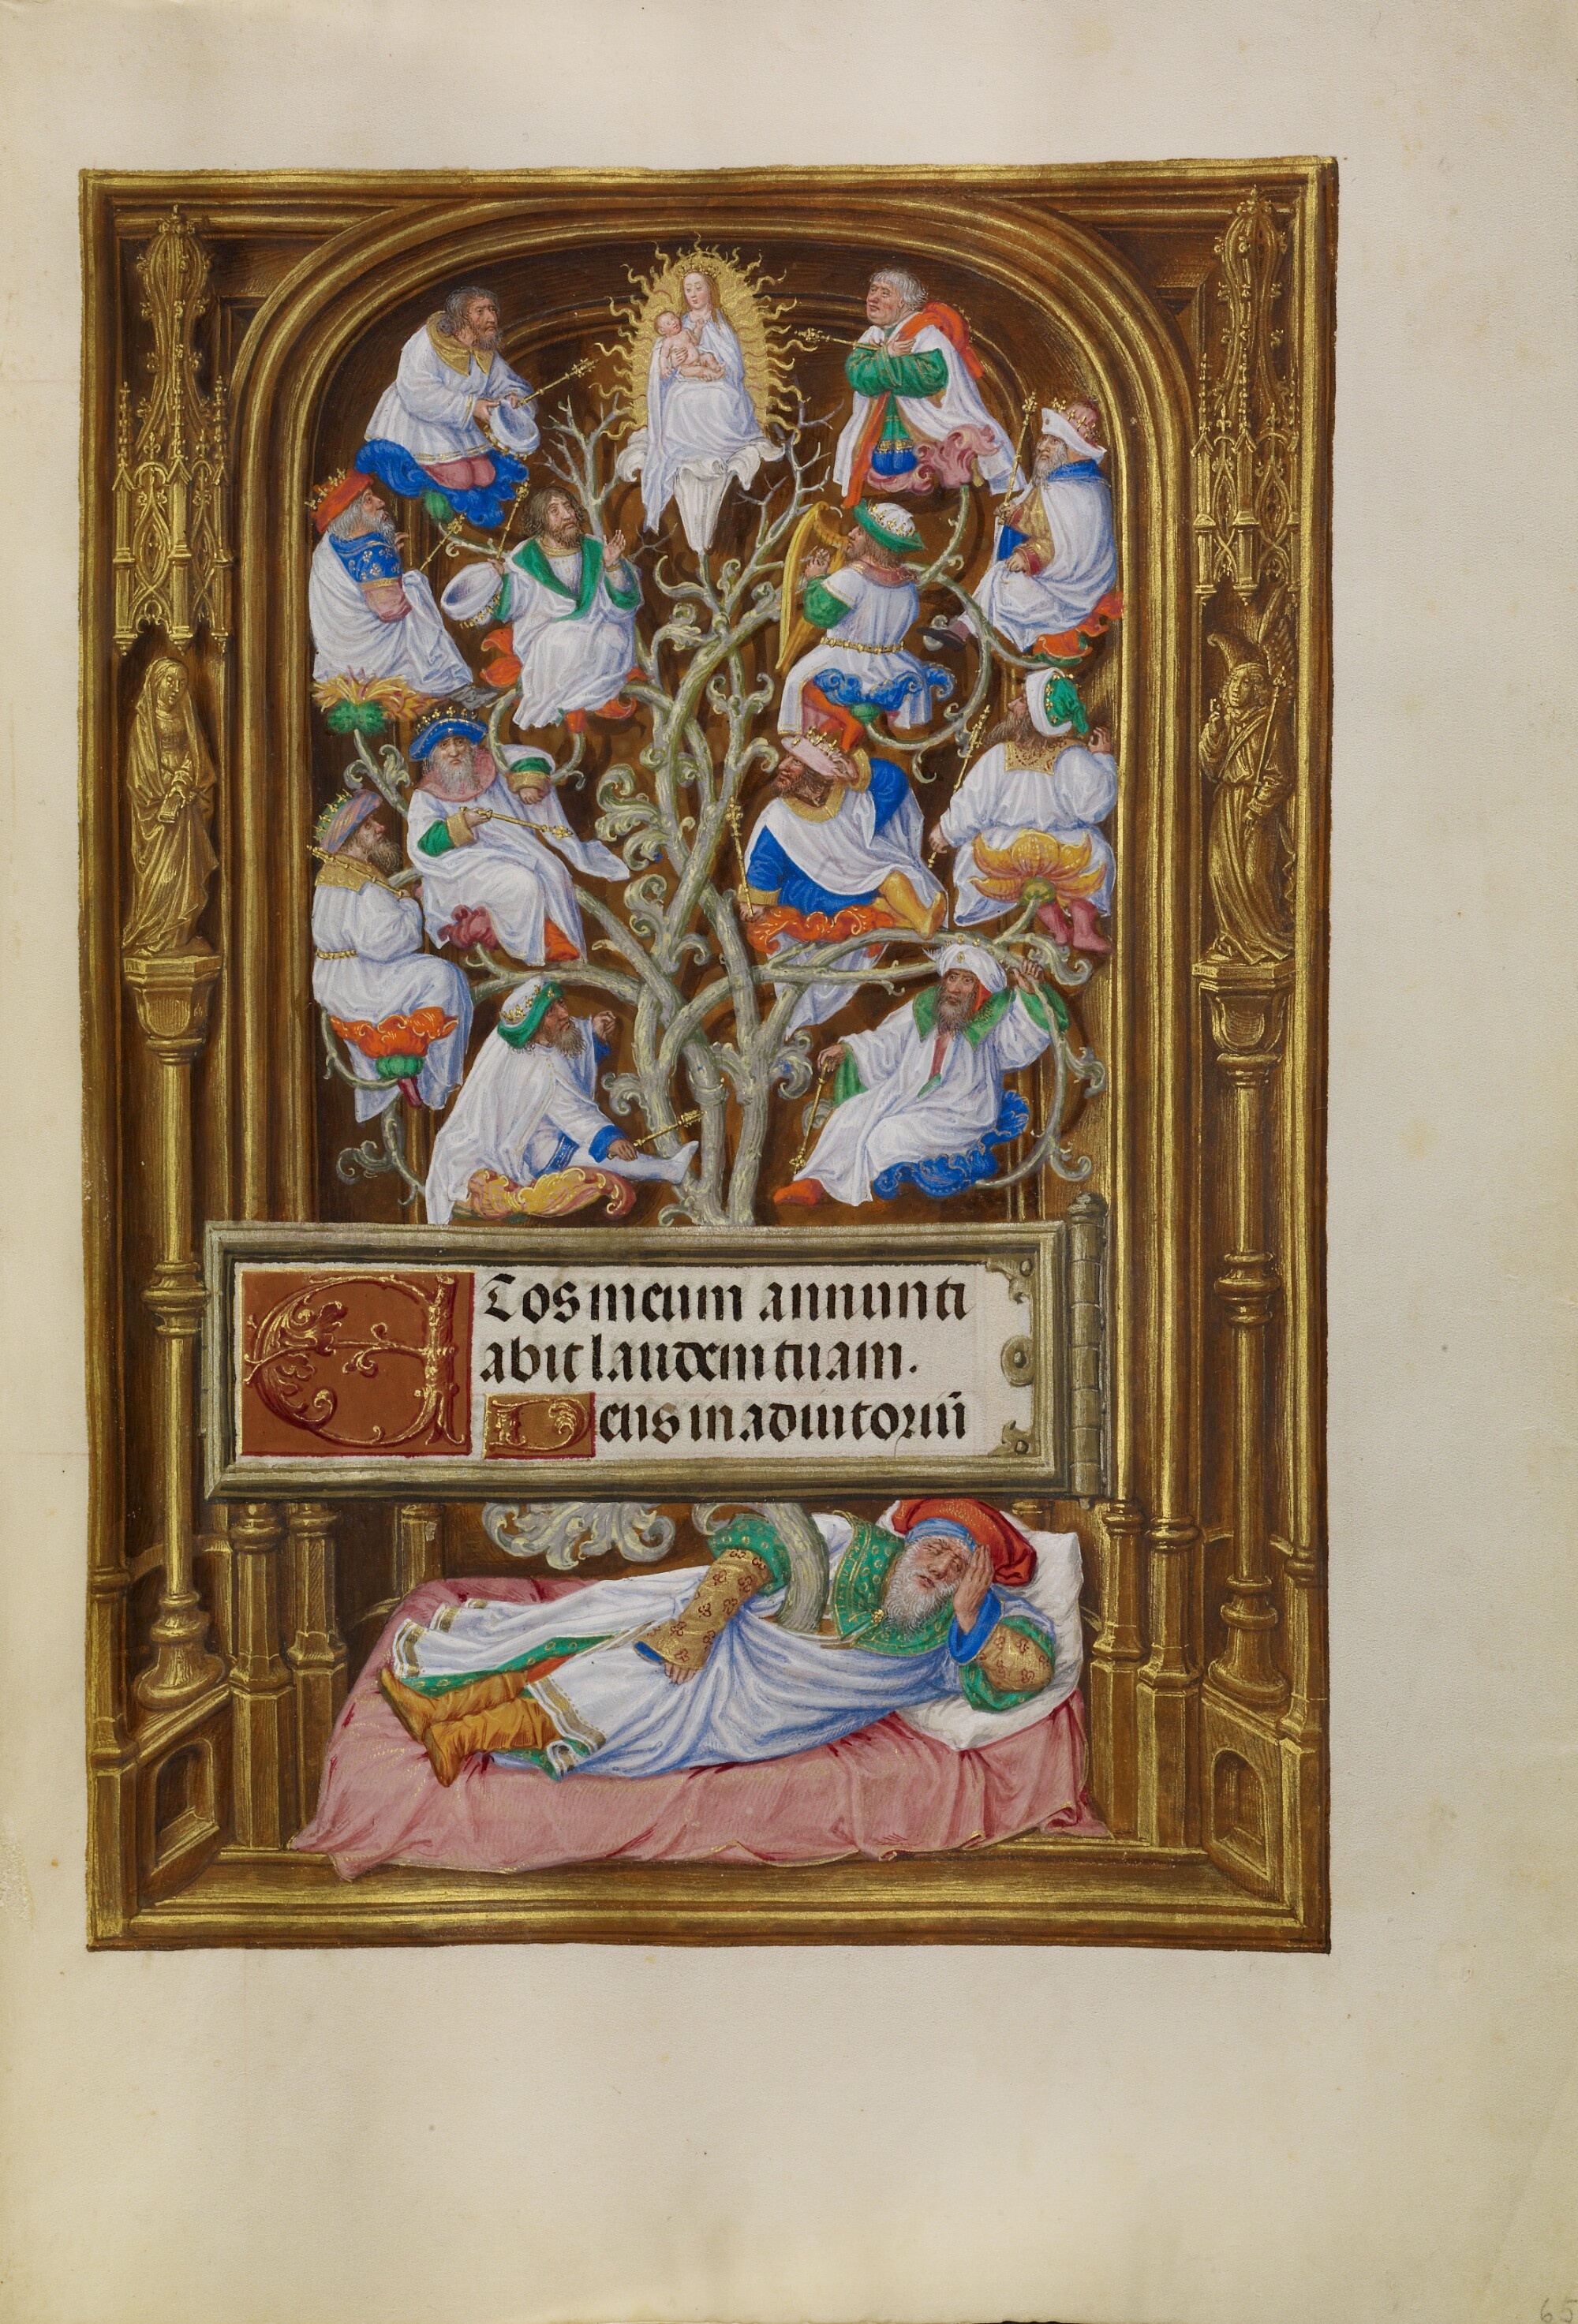 Et os meum annunti
abit laudem tuam.
Deus in adiutoriū
65